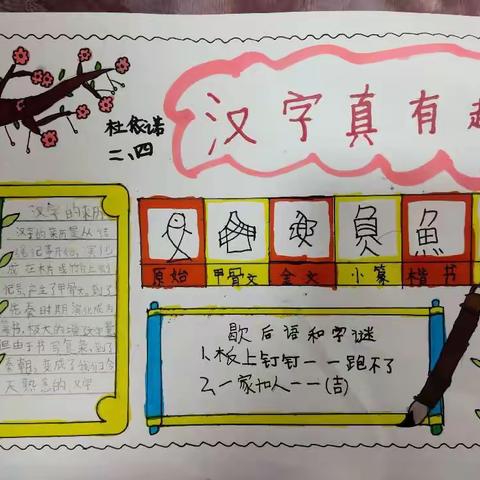 汉字真有趣
杜依诺
二、四
汉字的来历
汉字的来历是从结
绳记事开始,
成在木片或竹上刻
记号,产生了甲骨文,到了
先秦时期演化成为
篆书,极大的
但由于书写复杂,到了
秦朝,变成了我们今
天熟悉的文字
魚
原始 甲骨文 金文 小篆 楷书
歇后语和字谜
1、板上钉钉一一跑不了
2、一家加人一一(吉)